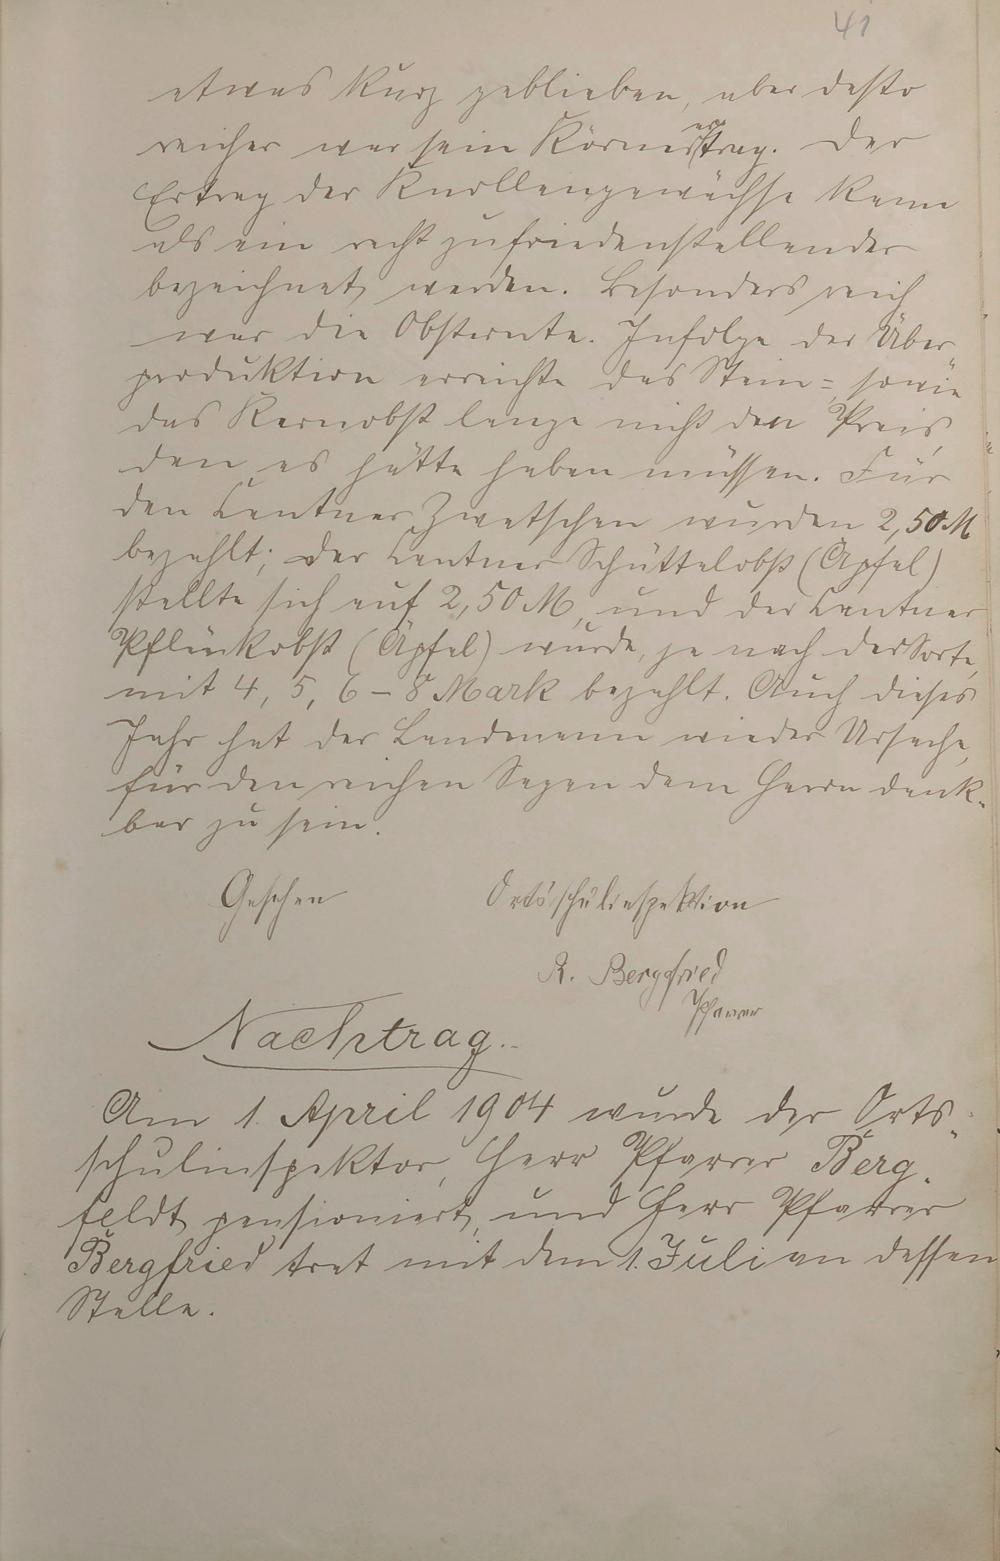 41
etwas kurz geblieben, aber desto
reicher war sein Körnerertrag. Der
Ertrag der Knollengewächse kann
als ein recht zufriedenstellender
bezeichnet werden. Besonders reich
war die Obsternte. Infolge der Über-
produktion erreichte das Stein=, sowie
das Kernobst lange nicht den Preis,
den es hätte haben müssen. Für
den Centner Zwetschen wurden 2,50 M
bezahlt; der Centner Schüttelobst (Äpfel)
stellte sich auf 2,50 M, und der Centner
Pflückobst (Äpfel) wurde, je nach der Sorte,
mit 4, 5, 6 – 8 Mark bezahlt. Auch dieses
Jahr hat der Landmann wieder Ursache,
für den reichen Segen dem Herrn dank-
bar zu sein.
Gesehen Ortsschulinspektion
R. Bergfried
Pfarrer
Nachtrag.
Am 1. April 1904 wurde der Orts-
schulinspektor, Herr Pfarrer Berg-
feldt pensioniert, und Herr Pfarrer
Bergfried trat mit dem 1. Juli an dessen
Stelle.